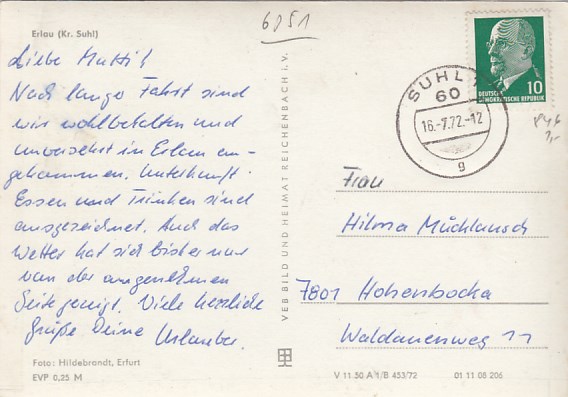 6851
Erlau (Kr. Suhl)
Liebe Mutti!
Nach langer Fahrt sind
wir wohlbehalten und
unversehrt in Erlau an-
gekommen. Unterkunft
Essen und Trinken sind
ausgezeichnet. Auch das
Wetter hat sich bisher nur
von der angenehmen
Seite gezeigt. Viele herzliche
Grüße Deine Urlauber.
Foto: Hildebrandt, Erfurt
EVP 0,25 M
VEB BILD UND HEIMAT REICHENBACH i.V.
SUHL
60
16.-7.72.-12
g
10
DEUTSCHE
DEMOKRATISCHE REPUBLIK
Frau
Hilma
7801 Hohenbocka
Waldauenweg 11
V 11 50 A 1/B 453/72 01 11 08 206